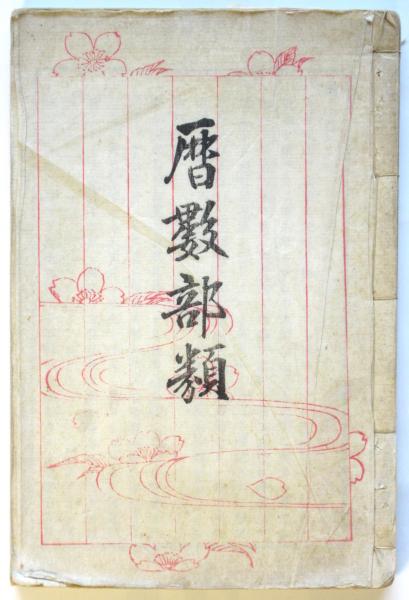 暦數部類